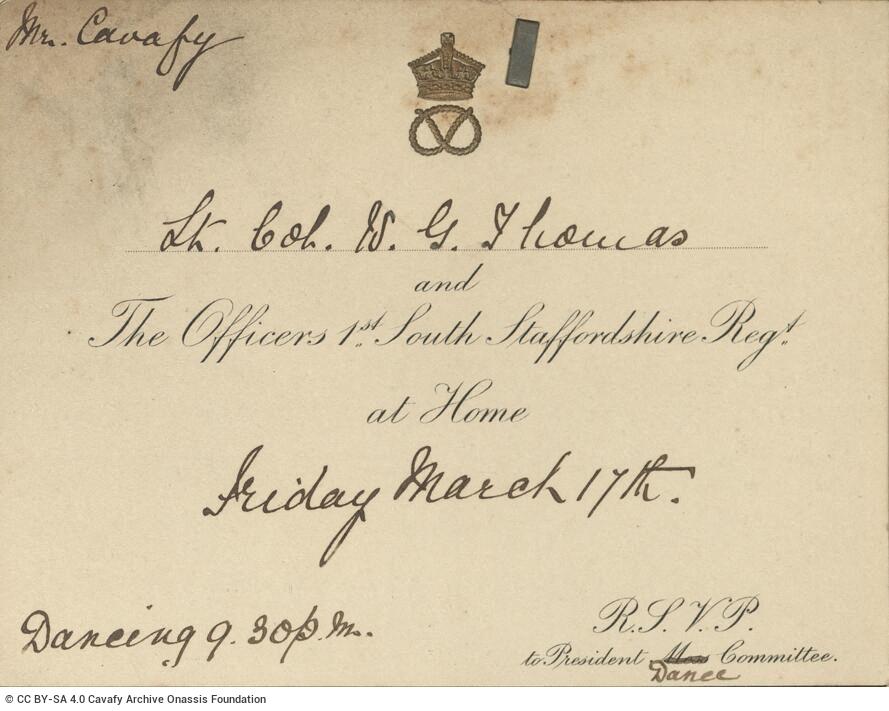 Mr. Cavafy
Lt. Col. W. G. Thomas
and
The Officers 1st South Staffordshire Regt.
at Home
Friday March 17th.
Dancing 9.30 p.m.
R.S.V.P.
to President Mess Committee.
Dance
© CC BY-SA 4.0 Cavafy Archive Onassis Foundation